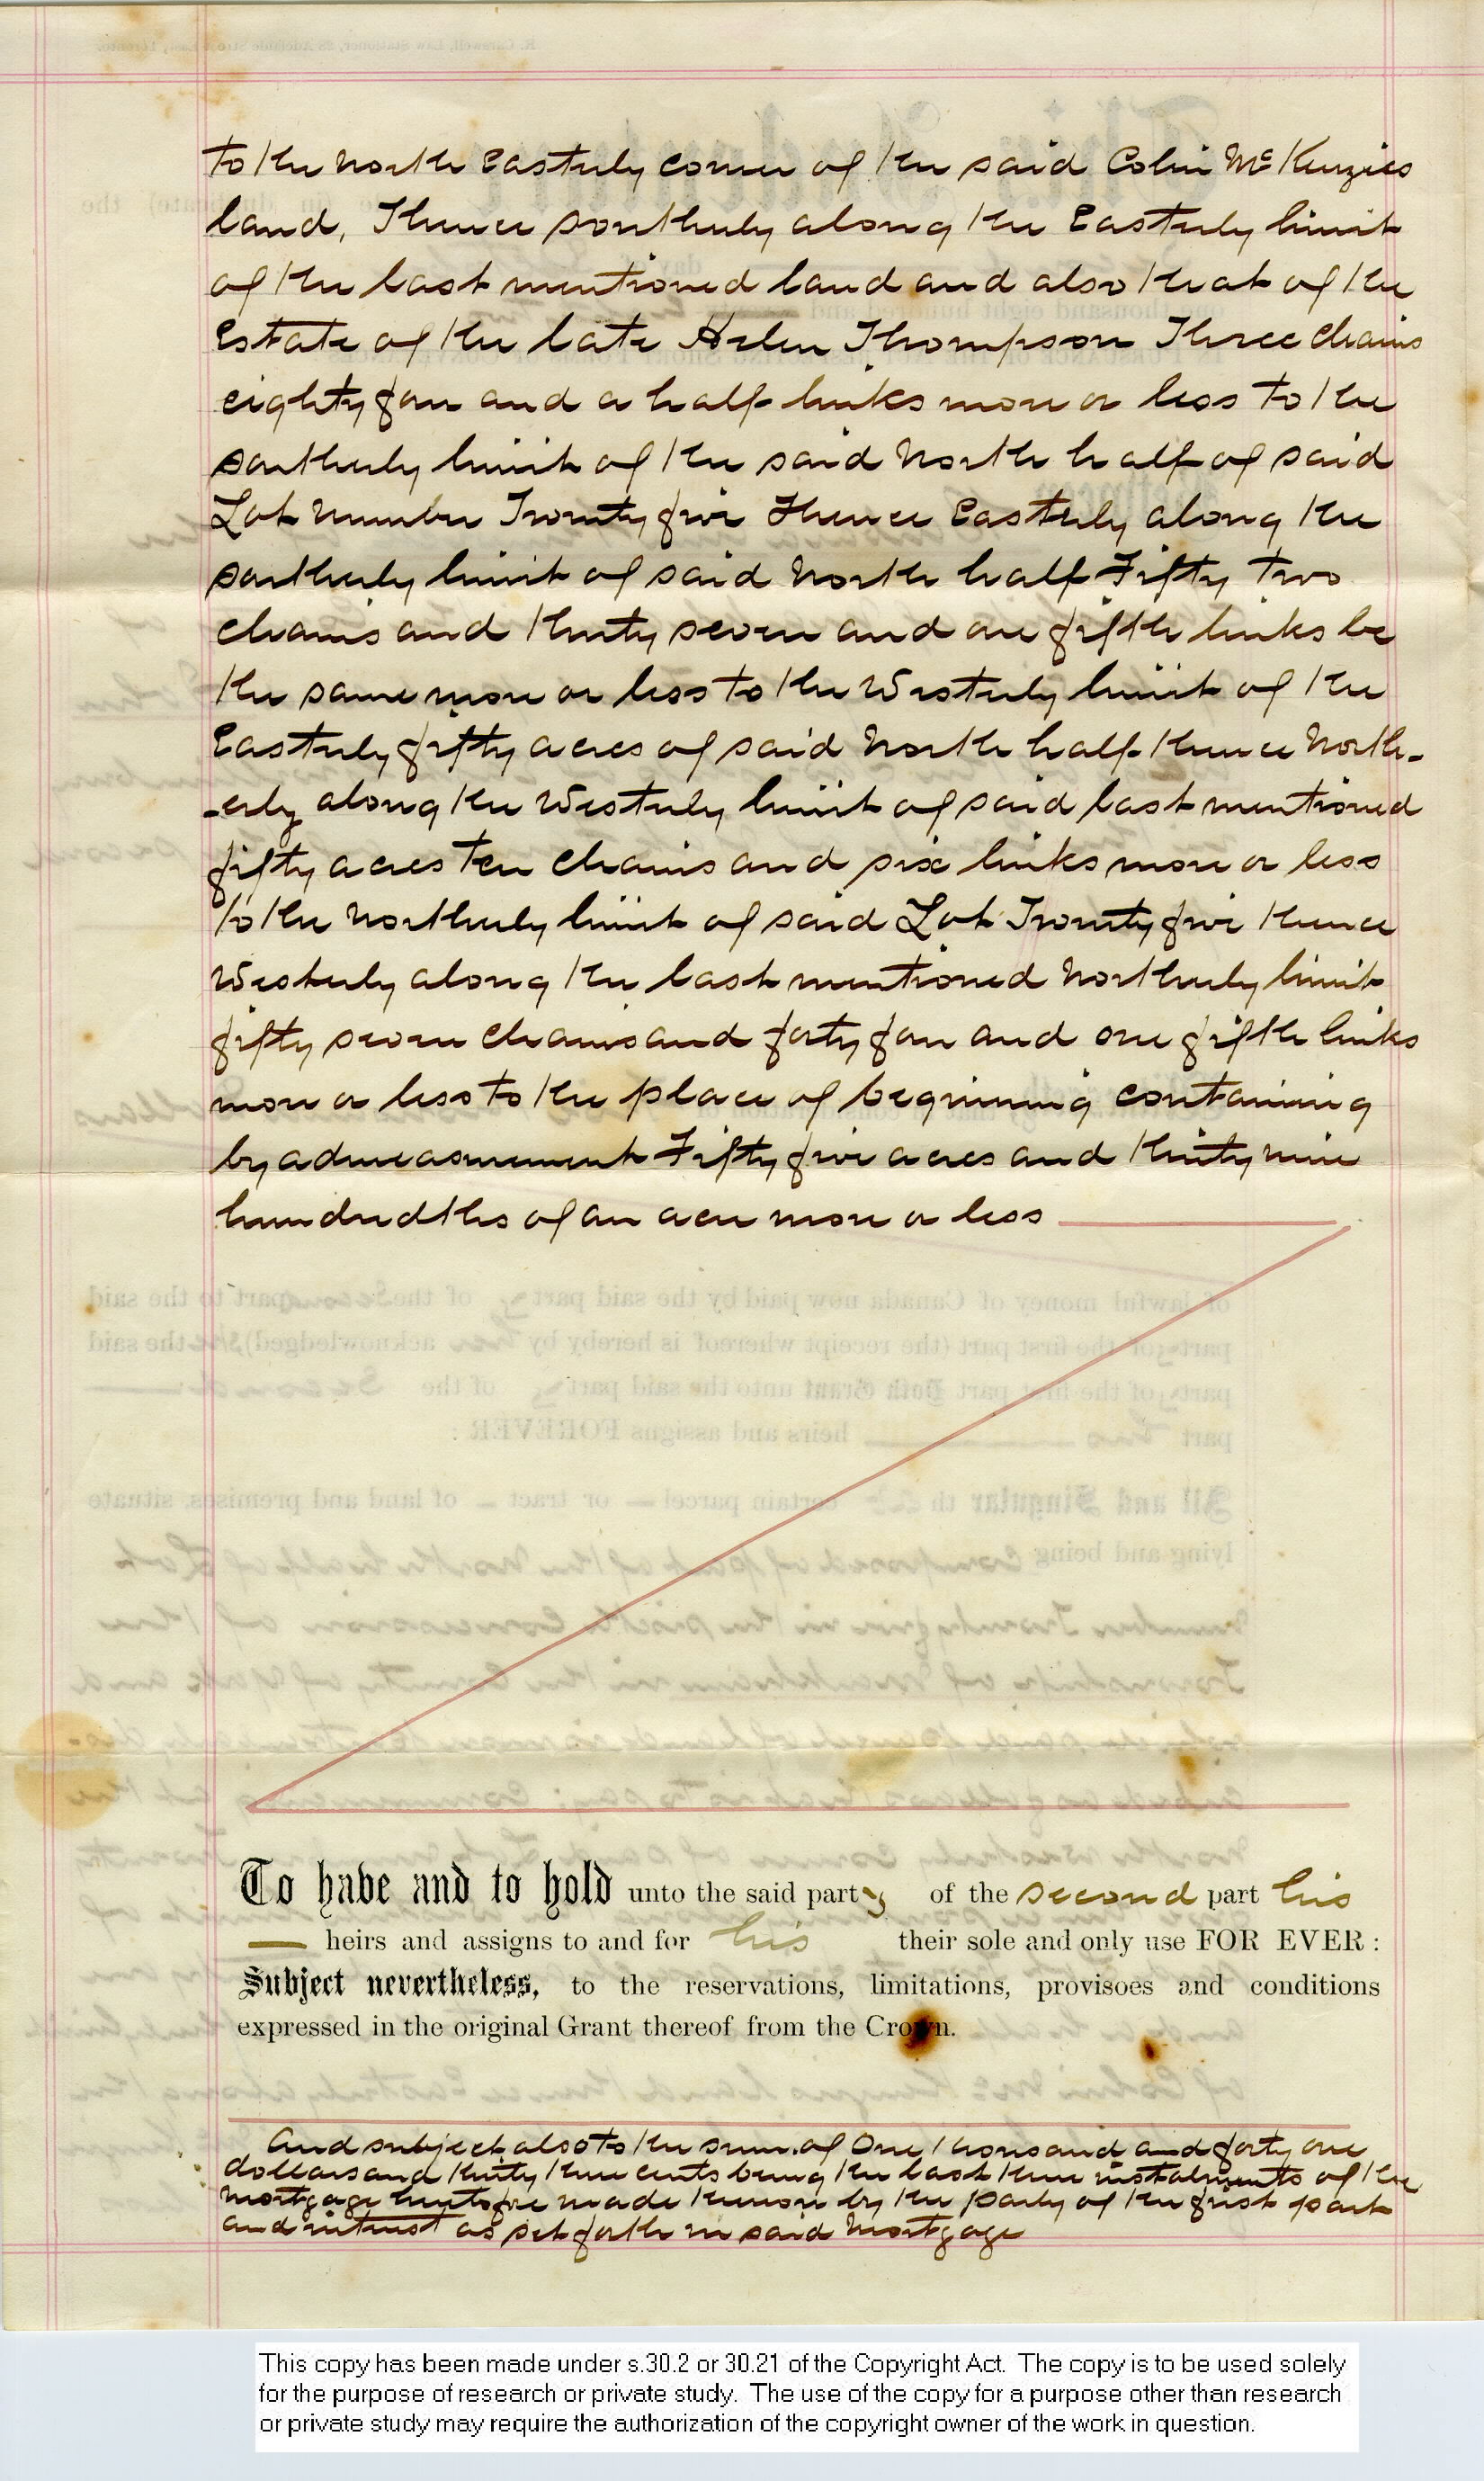 to the North Easterly corner of the said Colin McKenzies
land, Thence southerly along the Easterly limit
of the last mentioned land and also that of the
Estate of the late Helen Thompson Three chains
eighty four and a half links more or less to the
southerly limit of the said North half of said
Lot Number Twenty five Thence Easterly along the
southerly limit of said North half Fifty two
chains and thirty seven and one fifth links be
the same more or less to the Westerly limit of the
Easterly fifty acres of said North half thence North-
-erly along the Westerly limit of said last mentioned
fifty acres Ten chains and six links more or less
to the Northerly limit of said Lot Twenty five thence
Westerly along the last mentioned Northerly limit
fifty seven chains and forty four and one fifth links
more or less to the place of beginning containing
by admeasurement Fifty five acres and thirty nine
hundredths of an acre more or less
To have and to hold unto the said party of the second part his
heirs and assigns to and for his their sole and only use FOR EVER :
Subject nevertheless, to the reservations, limitations, provisoes and conditions
expressed in the original Grant thereof from the Crown.
And subject also to the sum of One thousand and forty one
dollars and thirty three cents being the last three instalments of the
mortgage heretofore made thereon by the party of the first part
and interest as set forth in said Mortgage
This copy has been made under s.30.2 or 30.21 of the Copyright Act. The copy is to be used solely
for the purpose of research or private study. The use of the copy for a purpose other than research
or private study may require the authorization of the copyright owner of the work in question.